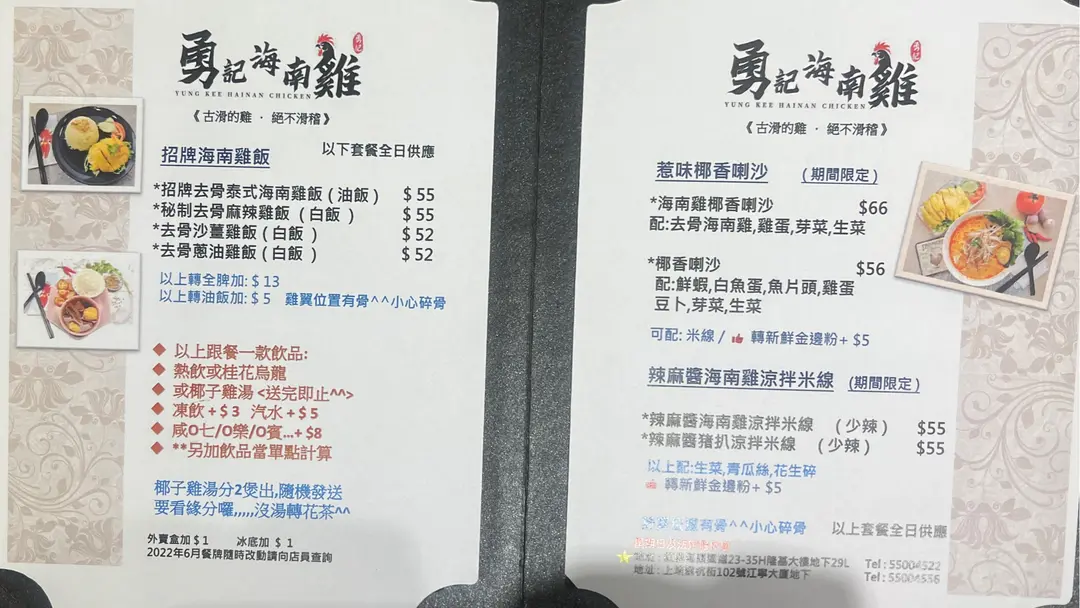 勇記海南雞
YUNG KEE HAINAN CHICKEN
《古滑的雞 · 絕不滑稽》
招牌海南雞飯 以下套餐全日供應
*招牌去骨泰式海南雞飯(油飯) $55
*秘制去骨麻辣雞飯 (白飯 ) $55
*去骨沙薑雞飯(白飯 ) $52
*去骨蔥油雞飯(白飯 ) $52
以上轉全髀加: $13
以上轉油飯加: $5 雞翼位置有骨^^小心碎骨
◆ 以上跟餐一款飲品:
◆ 熱飲或桂花烏龍
◆ 或椰子雞湯<送完即止^^>
◆ 凍飲+$3 汽水+$5
◆ 咸O七/O樂/O賓...+$8
◆ **另加飲品當單點計算
椰子雞湯分2煲出,隨機發送
要看緣分囉,,,,,沒湯轉花茶^^
外賣盒加$1 冰底加 $1
2022年6月餐牌隨時改動請向店員查詢
勇記海南雞
勇記
YUNG KEE HAINAN CHICKEN
《古滑的雞 · 絕不滑稽》
惹味椰香喇沙 (期間限定)
*海南雞椰香喇沙 $66
配:去骨海南雞,雞蛋,芽菜,生菜
*椰香喇沙 $56
配:鮮蝦,白魚蛋,魚片頭,雞蛋
豆卜,芽菜,生菜
可配: 米線/ 轉新鮮金邊粉+ $5
辣麻醬海南雞涼拌米線 (期間限定)
*辣麻醬海南雞涼拌米線 (少辣) $55
*辣麻醬豬扒涼拌米線 (少辣) $55
以上配:生菜,青瓜絲,花生碎
轉新鮮金邊粉+ $5
有骨^^小心碎骨 以上套餐全日供應
23-35H隆基大樓地下29L Tel : 55004522
地址: 上 102號江寧大廈地下 Tel : 55004556